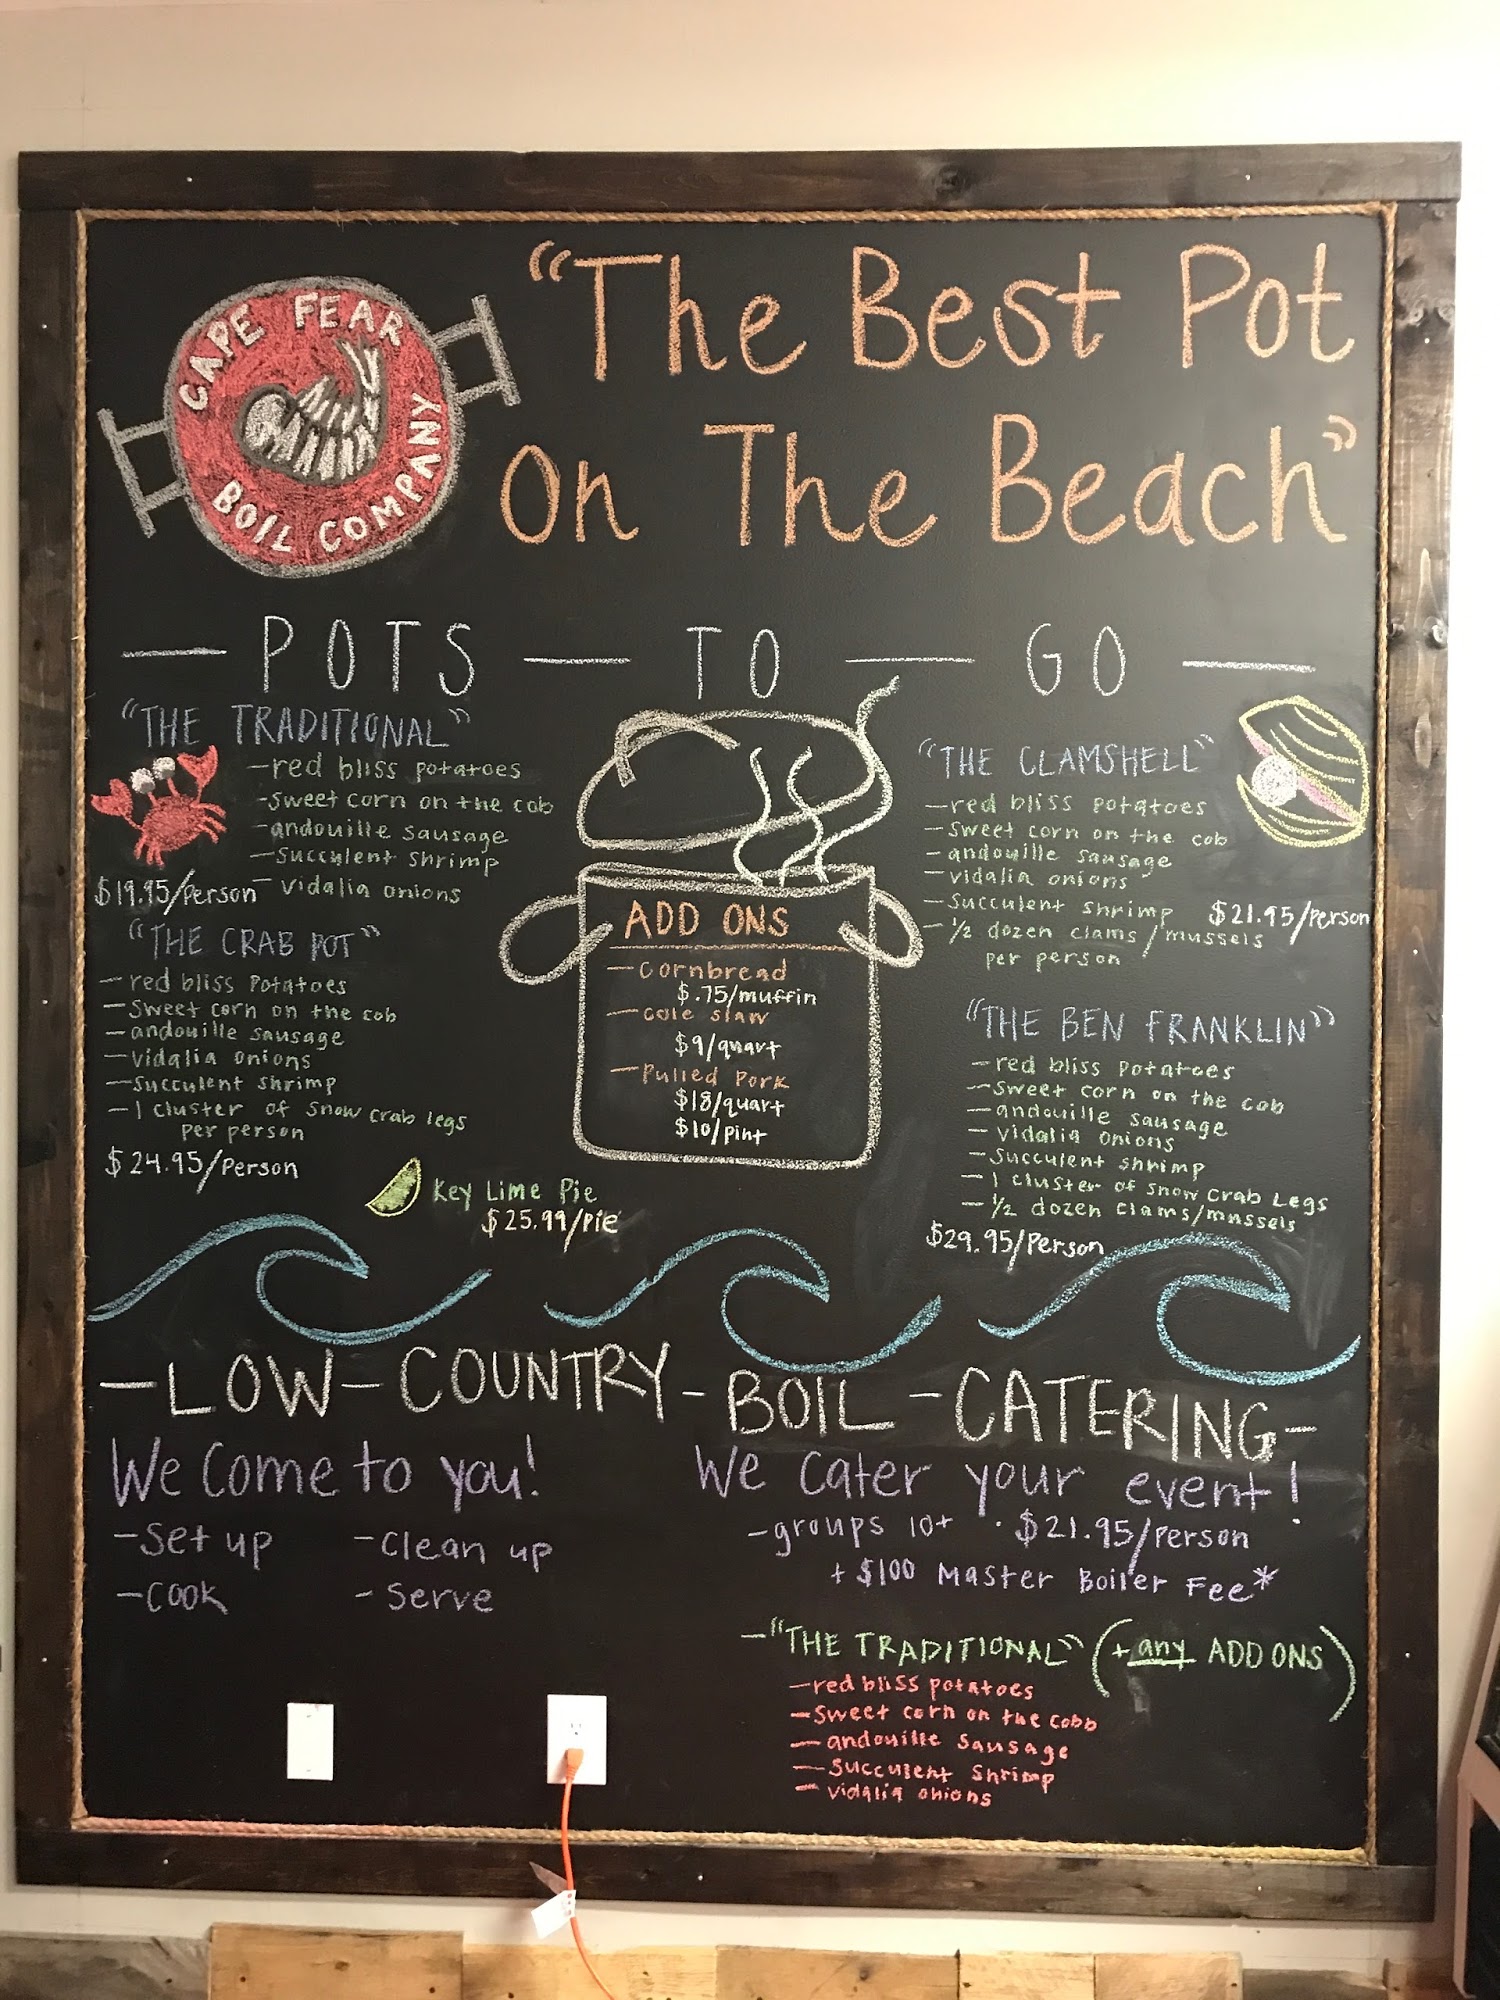 CAPE FEAR
BOIL COMPANY
"The Best Pot
On The Beach"
— POTS — TO — GO —
"THE TRADITIONAL"
- red bliss potatoes
- sweet corn on the cob
- andouille sausage
- succulent shrimp
- vidalia onions
$19.95/person
"THE CRAB POT"
- red bliss potatoes
- sweet corn on the cob
- andouille sausage
- vidalia onions
- succulent shrimp
- 1 cluster of snow crab legs
per person
$24.95/person
Key Lime Pie
$25.99/pie
ADD ONS
- cornbread
$.75/muffin
- cole slaw
$9/quart
- pulled pork
$18/quart
$10/pint
"THE CLAMSHELL"
- red bliss potatoes
- sweet corn on the cob
- andouille sausage
- vidalia onions
- succulent shrimp
- 1/2 dozen clams/mussels
per person
$21.95/person
"THE BEN FRANKLIN"
- red bliss potatoes
- sweet corn on the cob
- andouille sausage
- vidalia onions
- succulent shrimp
- 1 cluster of snow crab legs
- 1/2 dozen clams/mussels
$29.95/person
- LOW - COUNTRY - BOIL - CATERING -
We come to you!
- set up
- clean up
- cook
- serve
We cater your event!
- groups 10+ · $21.95/person
+ $100 Master Boiler Fee*
- "THE TRADITIONAL" (+ any ADD ONS)
- red bliss potatoes
- sweet corn on the cobb
- andouille sausage
- succulent shrimp
- vidalia onions